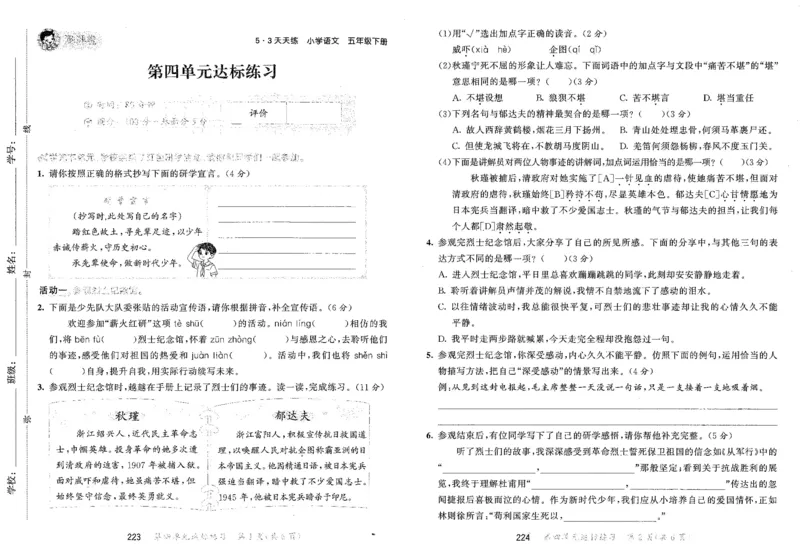 5·3天天练 小学语文 五年级下册
第四单元达标练习
评价
1. 请你按照正确的格式抄写下面的研学宣言。(4分)
(抄写时,此处写自己的名字)
踏红色故土,寻先辈足迹,以少年
赤诚传薪火,守历史初心。
承先辈使命,做新时代少年。
活动一
2. 下面是少先队大队委张贴的活动宣传语,请你根据拼音,补全宣传语。(6分)
欢迎参加“薪火红研”这项 tè shū( )的活动。nián líng( )相仿的我
们,将 bēn fù( )烈士纪念馆,怀着 zūn zhòng( )与感恩之心,去聆听他们
的事迹,感受他们对祖国的热爱和 juàn liàn( )。活动中,我们也将 shěn shì
( )自身,提升自我,用实际行动续写未来。
3. 参观烈士纪念馆时,越越在手册上记录了烈士们的事迹。读一读,完成练习。(11分)
秋瑾
浙江绍兴人,近代民主革命志
士,巾帼英雄。投身革命的她多次遭
到清政府的迫害,1907年被捕入狱。
面对威吓和虐待,她虽痛苦不堪,但
始终坚守信念,最终英勇就义。
郁达夫
浙江富阳人,积极宣传抗日救国道
理,以唤醒人民对企图称霸亚洲的日
本帝国主义。他因精通日语,被日本宪兵
强迫当翻译,暗中救了不少爱国志士。
1945年,他被日本宪兵暗杀于印尼。
学号:
姓名:
班级:
学校:
线
封
弥
223
(1)用“√”选出加点字正确的读音。(2分)
威吓(xià hè) 企图(qǐ qì)
(2)秋瑾宁死不屈的形象让人难忘。下面词语中的加点字与文段中“痛苦不堪”的“堪”
意思相同的是哪一项?( )(3分)
A. 不堪设想 B. 狼狈不堪 C. 苦不堪言 D. 堪当重任
(3)下列名句与郁达夫的精神最契合的是哪一项?( )(3分)
A. 故人西辞黄鹤楼,烟花三月下扬州。 B. 青山处处埋忠骨,何须马革裹尸还。
C. 但使龙城飞将在,不教胡马度阴山。 D. 羌笛何须怨杨柳,春风不度玉门关。
(4)下面是讲解员对两位人物事迹的讲解词,加点词运用恰当的是哪一项?( )(3分)
秋瑾被捕后,清政府对她实施了[A]一针见血的虐待,使她痛苦不堪,但面对
清政府的虐待,秋瑾始终[B]矜持不苟,尽显英雄本色。郁达夫[C]心甘情愿地为
日本宪兵当翻译,暗中救了不少爱国志士。秋瑾的气节与郁达夫的担当,让我们每
个人都[D]肃然起敬。
4. 参观完烈士纪念馆后,大家分享了自己的所见所感。下面的分享中,与其他三句的表
达方式不同的是哪一项?( )(3分)
A. 进入烈士纪念馆,平日里总喜欢蹦蹦跳跳的同学,此刻却安安静静地走着。
B. 聆听着讲解员声情并茂的解说,我情不自禁地流下了感动的泪水。
C. 以往情绪波动时,我总能很快平复,可烈士们的悲壮事迹却让我的心情久久不能
平静。
D. 我平时走两步路就喊累,今天走完全程却没抱怨过一句。
5. 参观完烈士纪念馆,你深受感动,内心久久不能平静。仿照下面的例句,运用恰当的人
物描写方法,把自己“深受感动”的情景写出来。(4分)
例:从见到这封电报起,毛主席整整一天没说一句话,只是一支接着一支地吸着烟。
6. 参观结束后,有位同学写下了自己的研学感悟,请你帮他补充完整。(5分)
听了烈士们的故事,我深深感受到革命烈士誓死保卫祖国的信念如《从军行》中的
“ , ”那般坚定;看到关于抗战胜利的展
览,我终于理解杜甫用“ , ”传达出的忽
闻捷报后喜极而泣的心情。作为新时代少年,我们应从小培养自己的爱国情怀,正如
林则徐所言:“苟利国家生死以, 。”
224